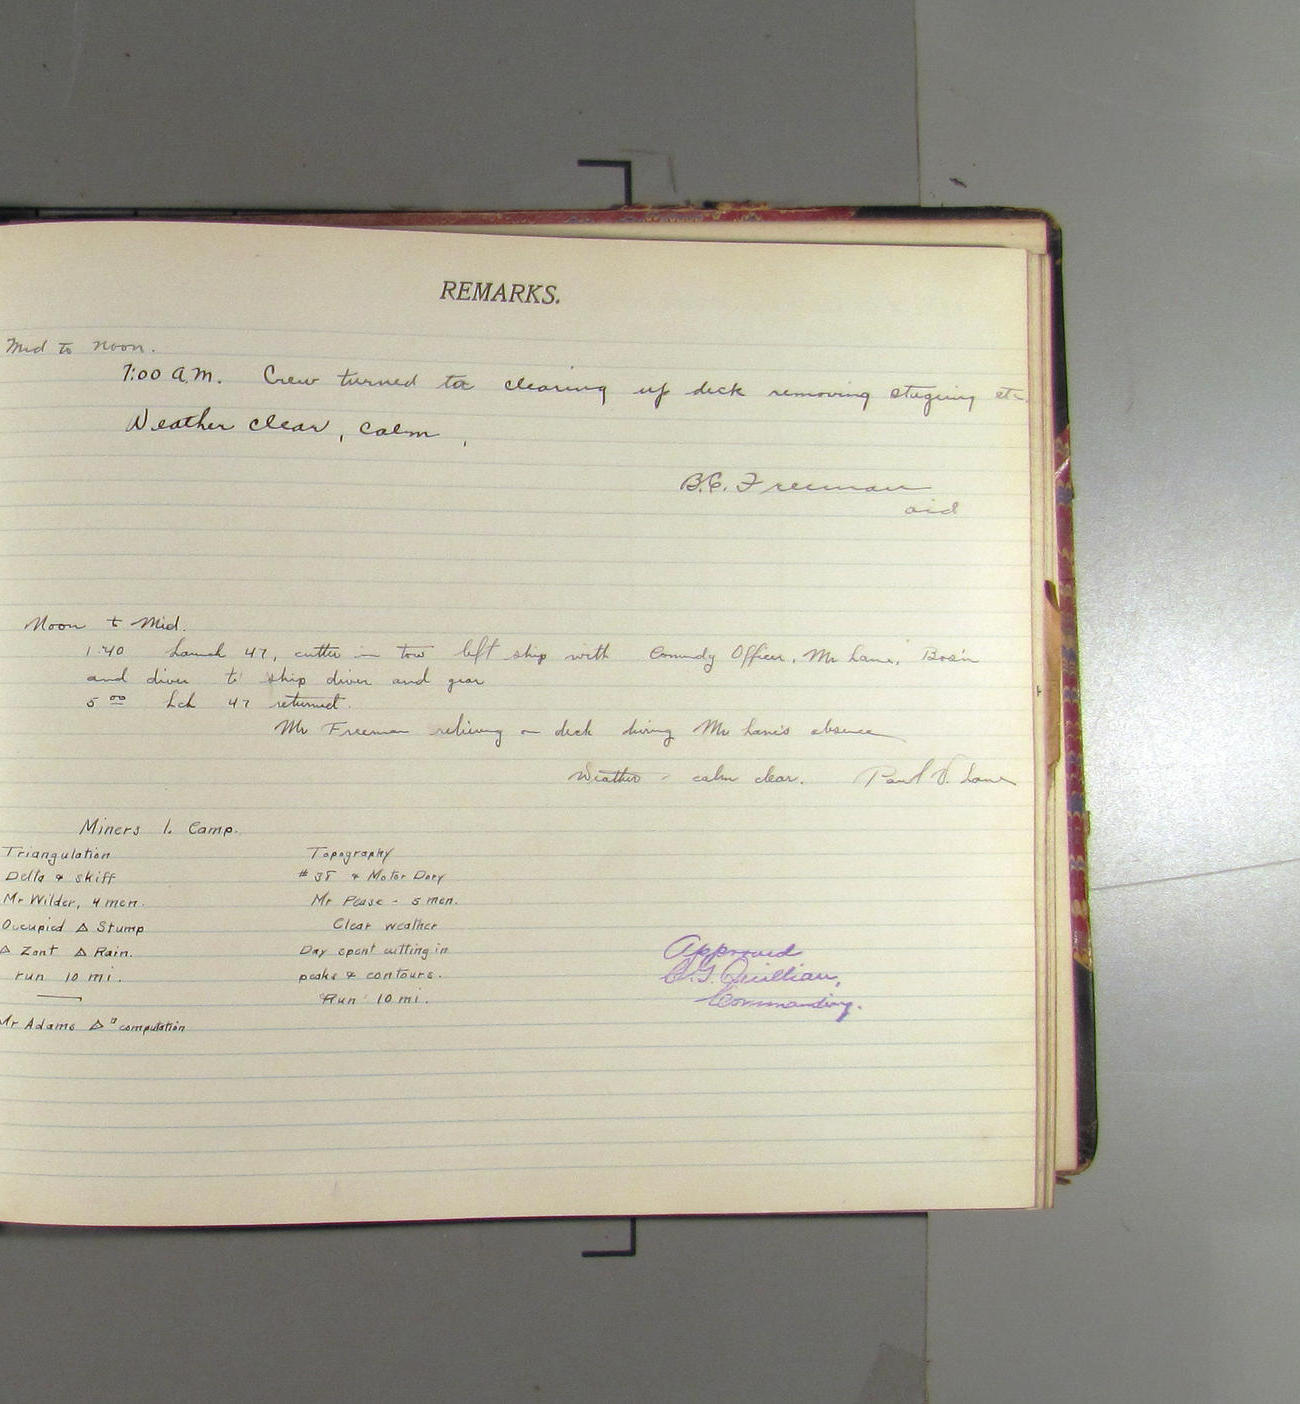 REMARKS.
Mid to Noon.
7:00 A.M. Crew turned to clearing up deck removing staging etc.
Weather clear, calm,
B.C. Freeman
aid
Noon to Mid.
1:40 Launch 47, cutter in tow left ship with Comndg Officer, Mr Lane, Bos'n
and diver to ship diver and gear
5 00 Lch 47 returned.
Mr Freeman relieving on deck during Mr Lane's absence
Weather - calm clear. Paul V. Lane
Miners I. Camp.
Triangulation
Delta & skiff
Mr Wilder, 4 men.
Occupied △ Stump
△ Zont △ Rain.
run 10 mi.
Mr Adams △ computation
Topography
#38 & Motor Dory
Mr Pease - 5 men.
Clear weather
Day spent cutting in
peaks & contours.
Run 10 mi.
Approved
C.G. Quillian,
Commanding.